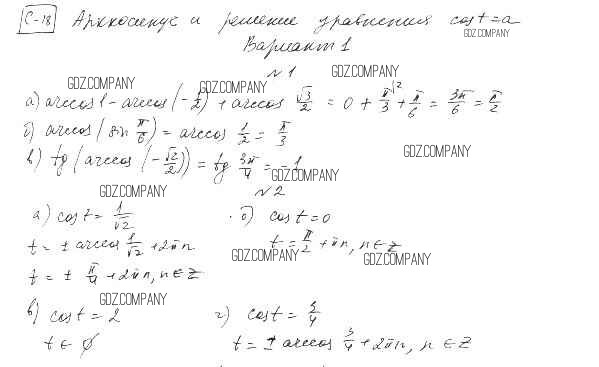 С-18 Арккосинус и решение уравнения cos t = a
GDZ.COMPANY
Вариант 1
№ 1
GDZ.COMPANY
GDZ.COMPANY GDZ.COMPANY
а) arccos 1 - arccos (-1/2) + arccos √3/2 = 0 + π/3 \2 + π/6 = 3π/6 = π/2
б) arccos (sin π/6) = arccos 1/2 = π/3
GDZ.COMPANY
в) tg (arccos (-√2/2)) = tg 3π/4 = -1
GDZ.COMPANY
GDZ.COMPANY
№ 2
а) cos t = 1/√2 б) cos t = 0
t = ± arccos 1/√2 + 2πn t = π/2 + πn, n ∈ Z
GDZ.COMPANY GDZ.COMPANY
t = ± π/4 + 2πn, n ∈ Z
GDZ.COMPANY
в) cos t = 2 г) cos t = 3/4
t ∈ ∅ t = ± arccos 3/4 + 2πn, n ∈ Z